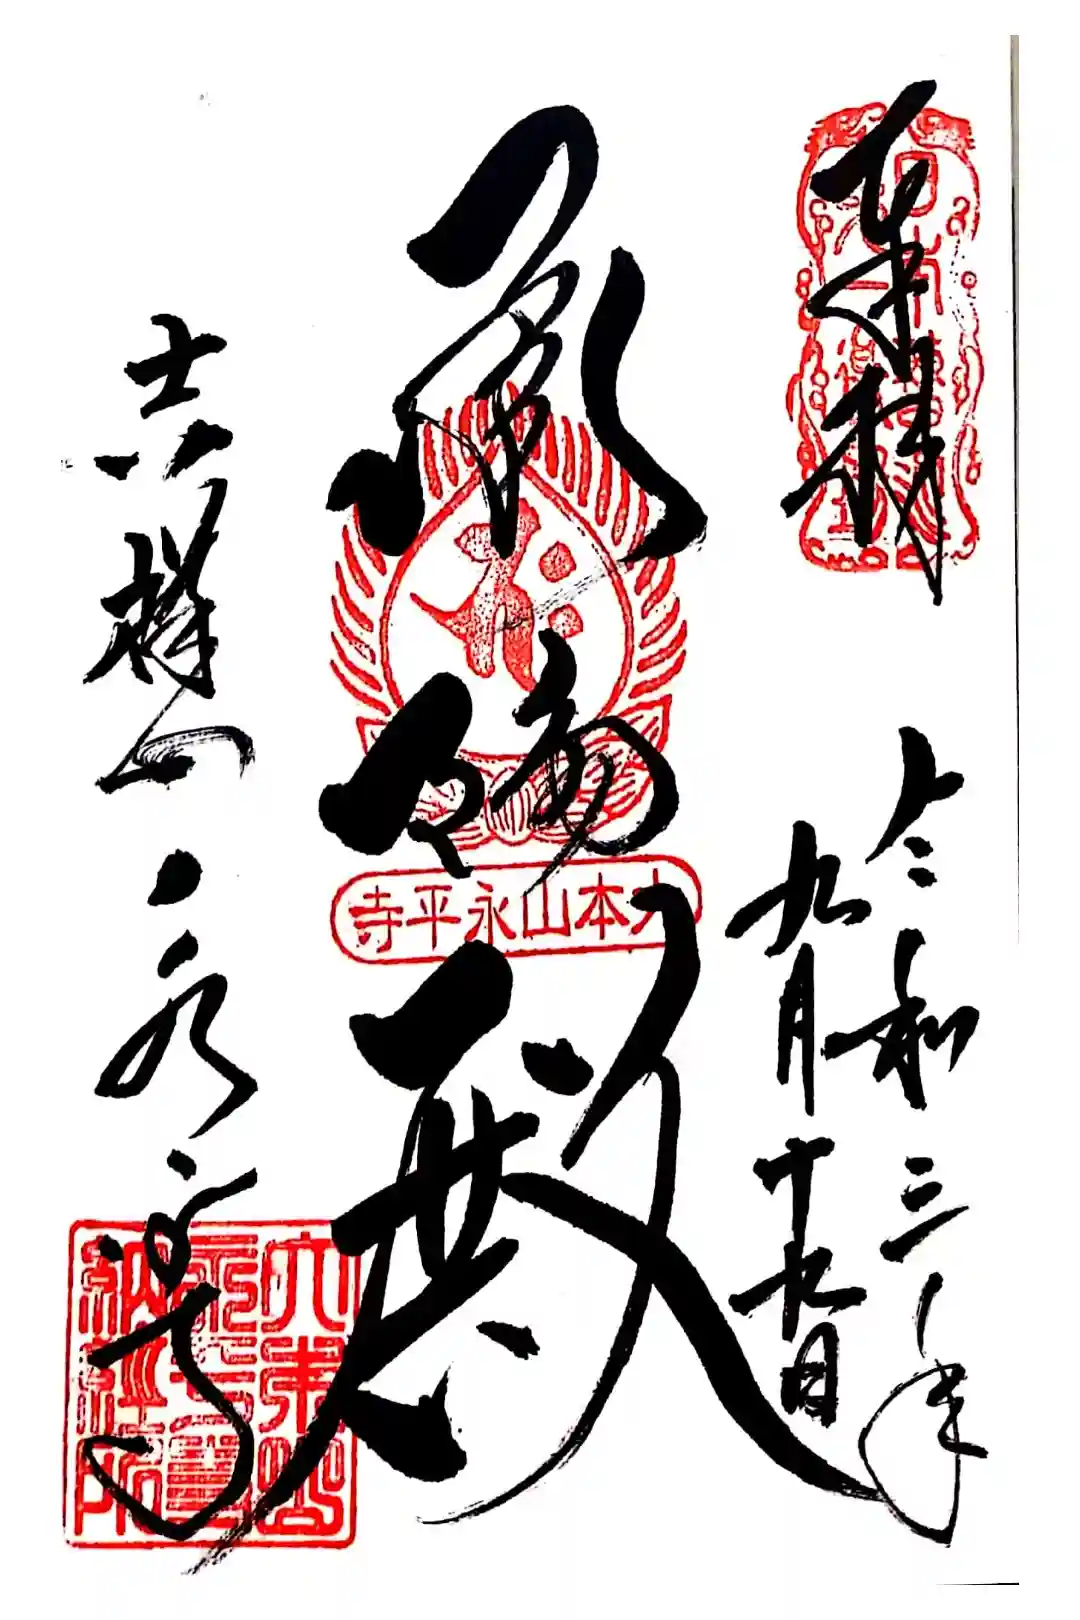 奉拝
令和三年
九月十九日
承陽殿
大本山永平寺
吉祥山
永平寺